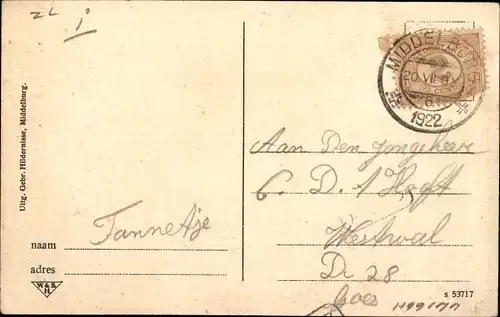 MIDDELBURG
20.VII.9
6
1922
Aan Den jongeheer
C. D. 1 Hooft
Westwal
D 28
Goes
Tannetje
naam
adres
W & B
H
Uitg. Gebr. Hildernisse, Middelburg.
s 53717